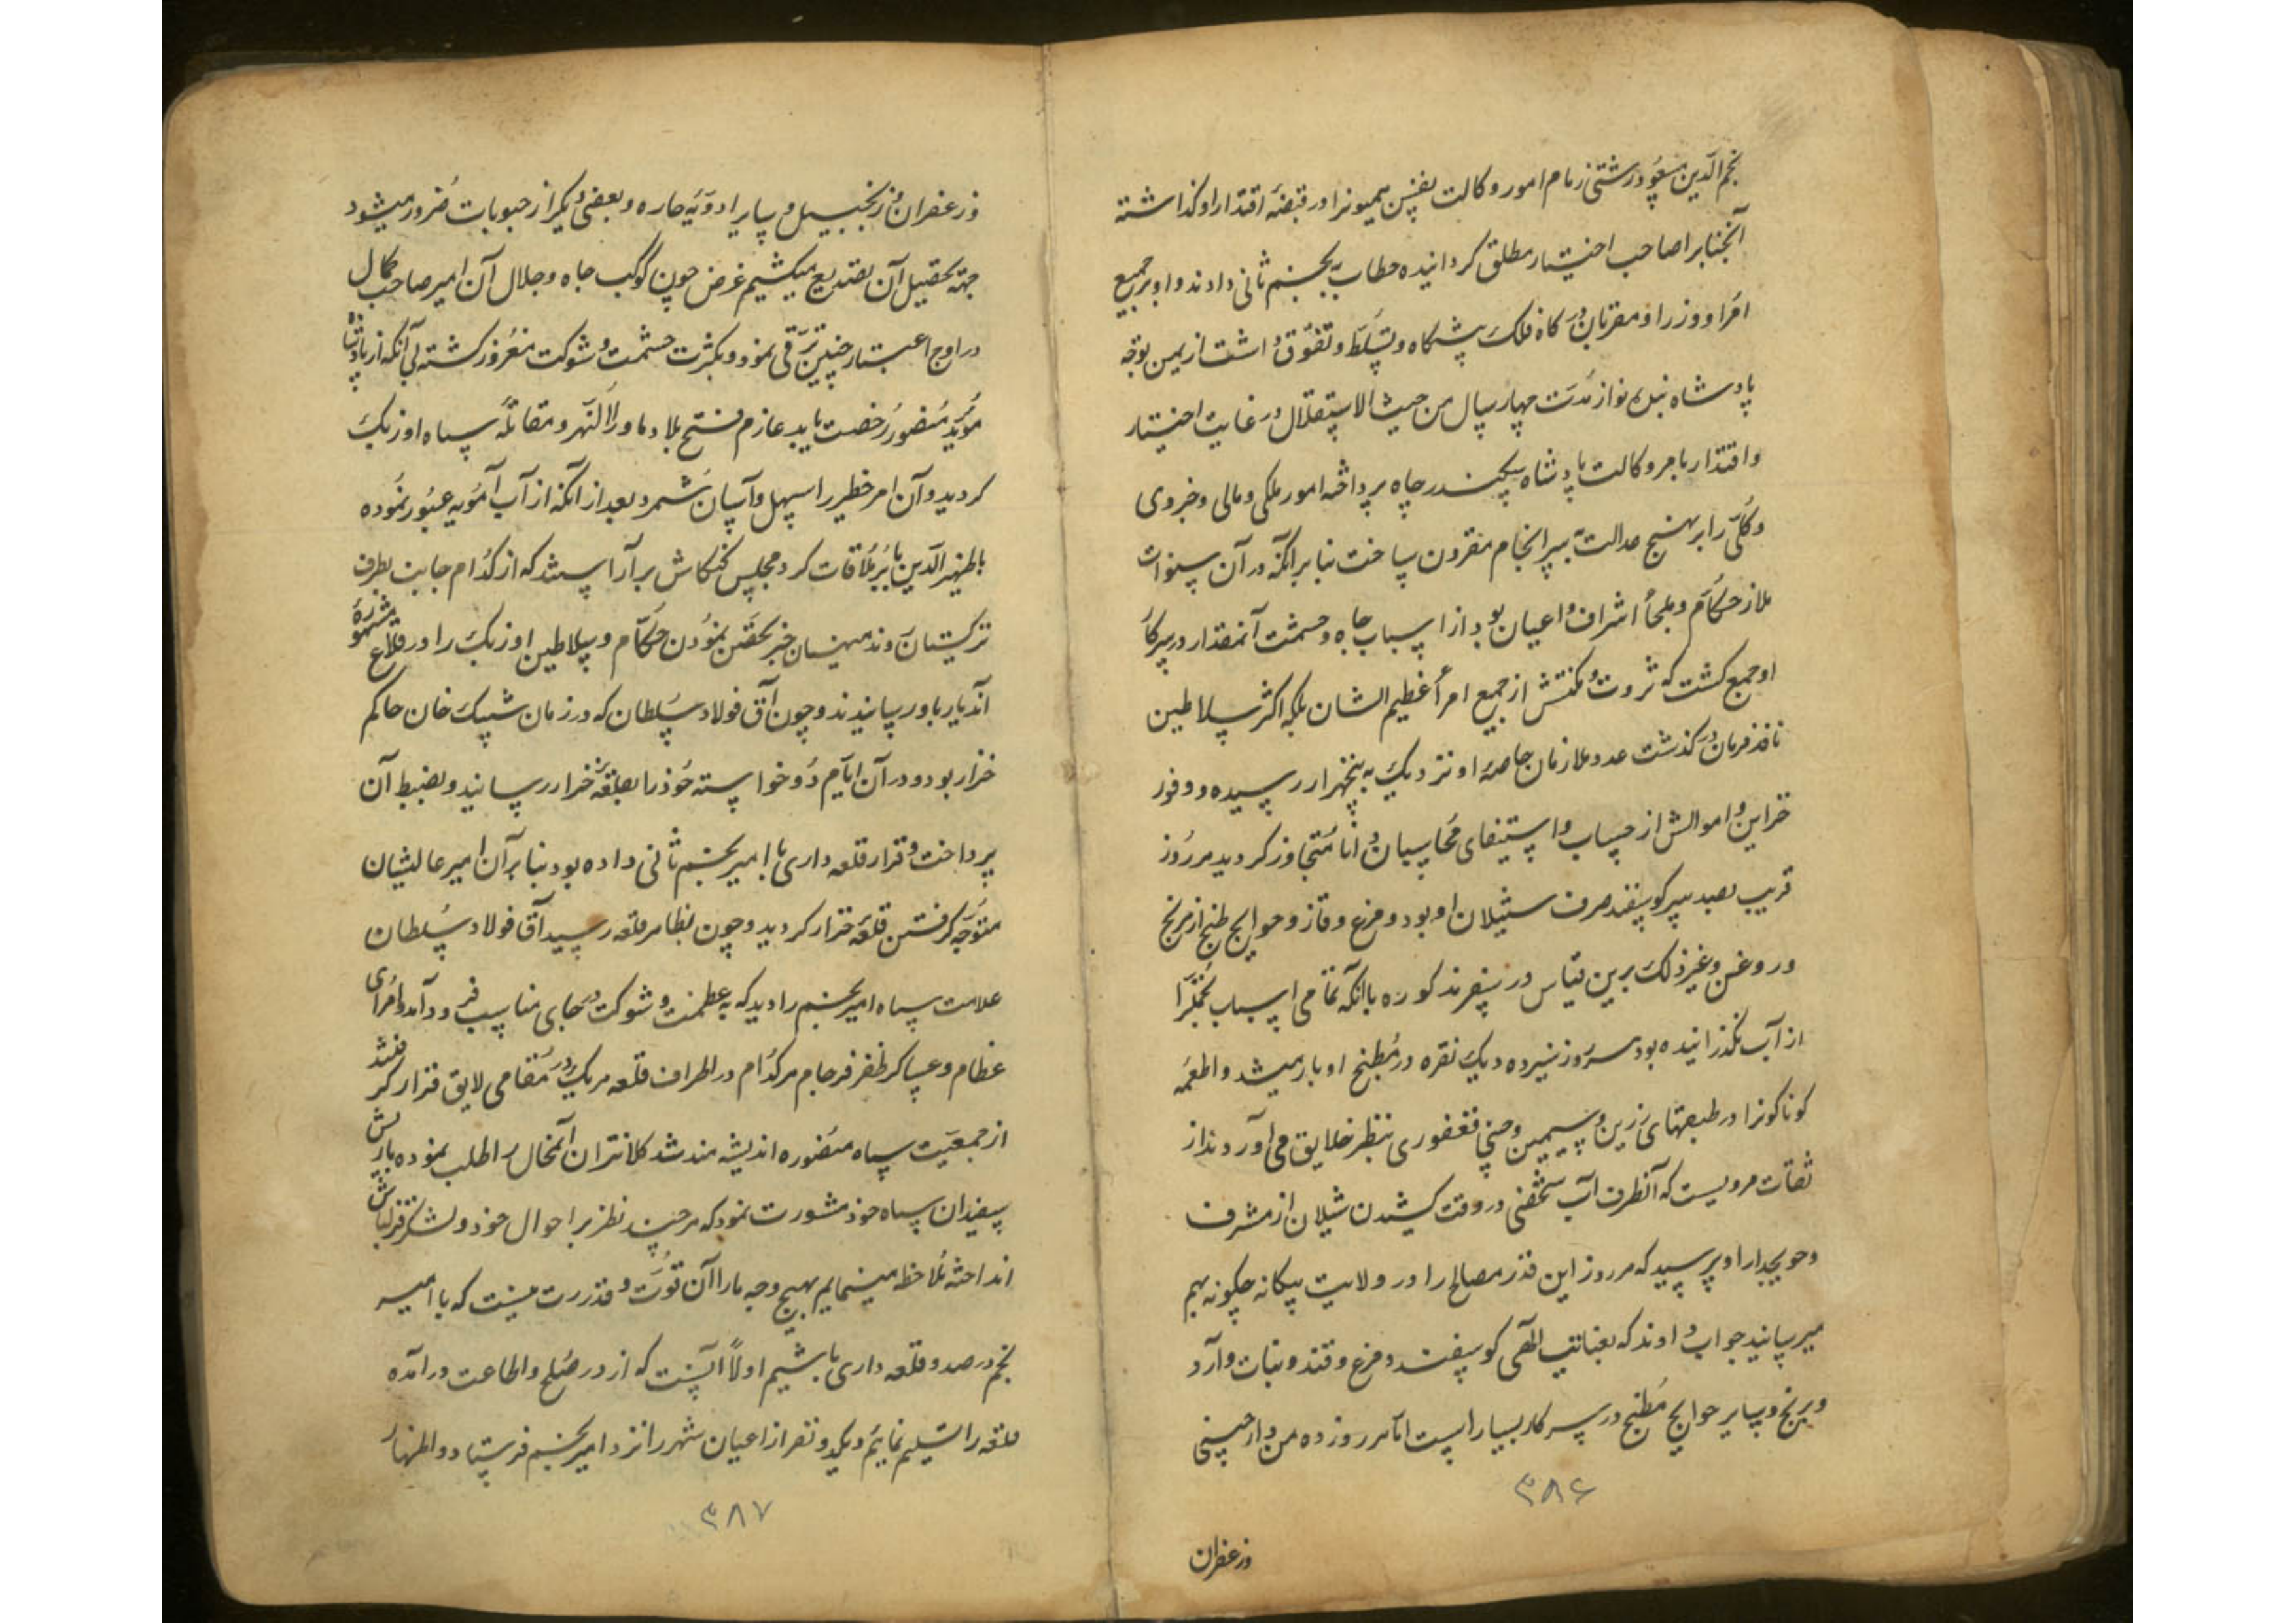 نجم الدین مسعود رشتی زمام امور وکالت نفیس همیونرا در قبضهٔ اقتدار او کذاشته
آنجنابرا صاحب اختیار مطلق کردانیده خطاب بنجم ثانی دادند و او بر جمیع
امرا و وزرا و مقربان درکاه فلک پیشکاه و تسلط و تفوق داشت از یمن توجه
پادشاه بنده نواز مدت چهار سال من حیث الاستقلال در غایت اختیار
و اقتدار بامر وکالت پادشاه سکندر جاه پرداخته امور ملکی و مالی و جزوی
و کلی را بر نهج عدالت بسرانجام مقرون ساخت بنا بر آنکه در آن سنوات
ملاذ حکام و ملجأ اشراف و اعیان بود از اسباب جاه و حشمت آنمقدار در سرکار
او جمع کشت که ثروت و مکنتش از جمیع امرأ عظیم الشان بلکه اکثر سلاطین
نافذ فرمان در کذشت عدد ملازمان خاصهٔ او نزدیک به پنجهزار رسیده و وفور
خزاین و اموالش از حساب و استیفای محاسبان دانا متجاوز کردید هر روز
قریب بصد سر کوسفند صرف شیلان او بود و مرغ و قاز و حوایج طبخ از برنج
و روغن و غیر ذلک برین قیاس در سفر مذکوره با آنکه تمامی اسباب تجمل را
از آب نکذرانیده بود هر روز سیزده دیک نقره در مطبخ او بار میشد و اطعمه
کوناکونرا در طبقهای زرین و سیمین و چینی فغفوری بنظر خلایق می آوردند از
ثقات مرویست که آنطرف آب شخصی در وقت کشیدن شیلان از مشرف
و حویجدار او پرسید که هر روز این قدر مصالح را در ولایت بیکانه چکونه بهم
میرسانید جواب دادند که بعنایت الهی کوسفند و مرغ و قند و نبات و آرد
و برنج و سایر حوایج مطبخ در سرکار بسیار است اما هر روز ده من دارچینی
۳۸۶
و زعفران
و زعفران و زنجبیل و سایر ادویهٔ حاره و بعضی دیکر از حبوبات ضرور میشود
جهة تحصیل آن تصدیع میکشیم غرض چون کوکب جاه و جلال آن امیر صاحب کمال
در اوج اعتبار چنین ترقی نمود و بکثرت حشمت و شوکت مغرور کشته بی آنکه از پادشاه
مؤید منصور رخصت یابد عازم فتح بلاد ماوراء النهر و مقاتلهٔ سپاه اوزبک
کردید و آن امر خطیر را سهل و آسان شمرد بعد از آنکه از آب آمویه عبور نموده
با ظهیر الدین بابر ملاقات کرد مجلس کنکاش بر آراستند که از کدام جانب بطرف
ترکستان روند منهیان خبر تحصن نمودن حکام و سلاطین اوزبک را در قلاع مشهوره
آندیار باو رسانیدند و چون آق فولاد سلطان که در زمان شیبک خان حاکم
خزار بود و در آن ایام دو خواسته خود را بقلعهٔ خزار رسانید و بضبط آن
پرداخت و قرار قلعه داری با امیر نجم ثانی داده بود بنا بر آن امیر عالیشان
متوجه کرفتن قلعهٔ خزار کردید و چون بظاهر قلعه رسید آق فولاد سلطان
علامت سپاه امیر نجم را دید که به عظمت و شوکت در جای مناسب فرود آمد و امرای
عظام و عساکر ظفر فرجام هر کدام در اطراف قلعه هر یک در مقامی لایق قرار کرفتند
از جمعیت سپاه منصوره اندیشه مند شد کلانتران آنمحال را طلب نموده با ریش
سفیدان سپاه خود مشورت نمود که هر چند نظر بر احوال خود و لشکر قزلباش
انداخته ملاحظه مینمایم بهیچ وجه ما را آن قوت و قدرت نیست که با امیر
نجم در صدد قلعه داری باشیم اولاً آنست که از در صلح و اطاعت در آمده
قلعه را تسلیم نمایم و یکدو نفر از اعیان شهر را نزد امیر نجم فرستاد و اظهار
۳۸۷